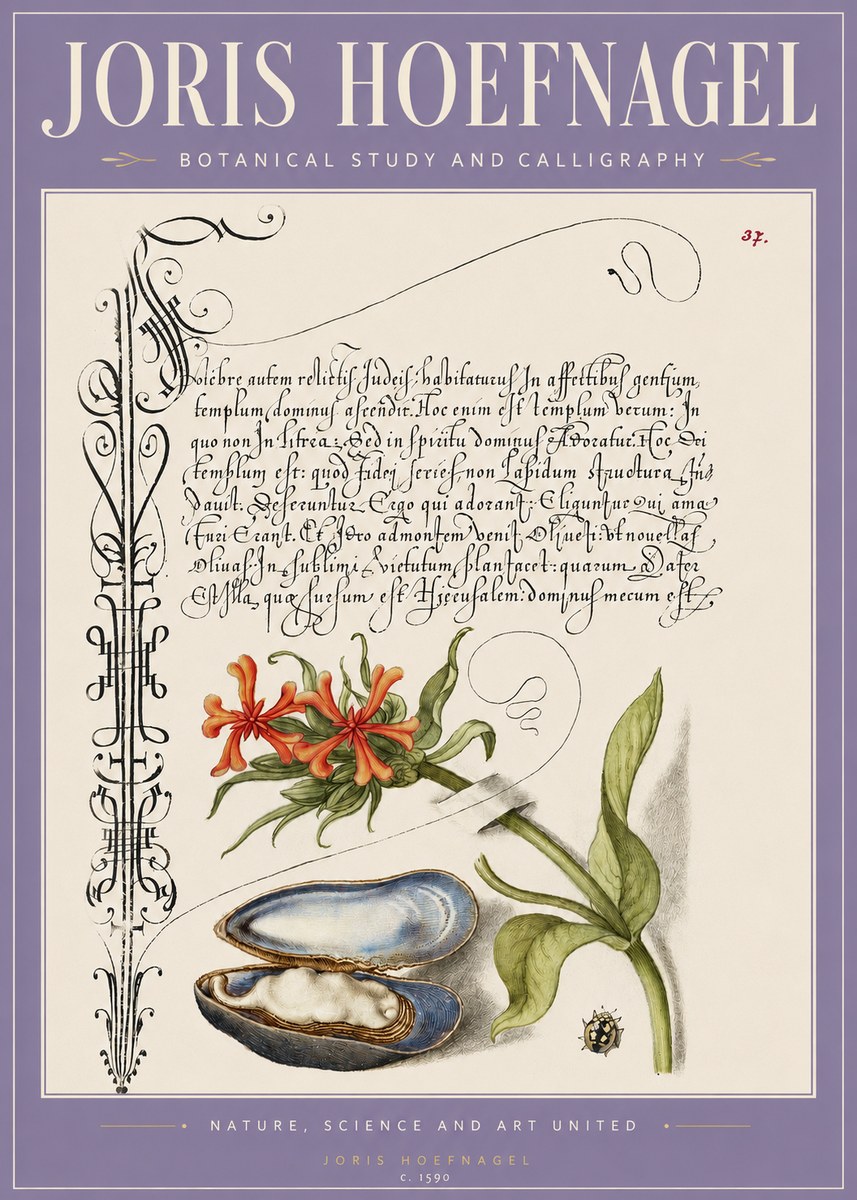 JORIS HOEFNAGEL
BOTANICAL STUDY AND CALLIGRAPHY
37.
autem relictis Judeis habitaturus In affectibus gentium,
templum dominus ascendit. Hoc enim est templum verum: In
quo non In littera: Sed in spiritu dominus Adoratur. Hoc Dei
templum est: quod fidei series, non Lapidum structura
Deseruntur Ergo qui adorant: Eliguntur Qui ama
turi Erant. Et Ideo ad montem venit Oliueti: vt nouellas
Oliuas In sublimi quarum Pater
Est Illa quæ sursum est Hierusalem: dominus mecum est
NATURE, SCIENCE AND ART UNITED
JORIS HOEFNAGEL
c. 1590